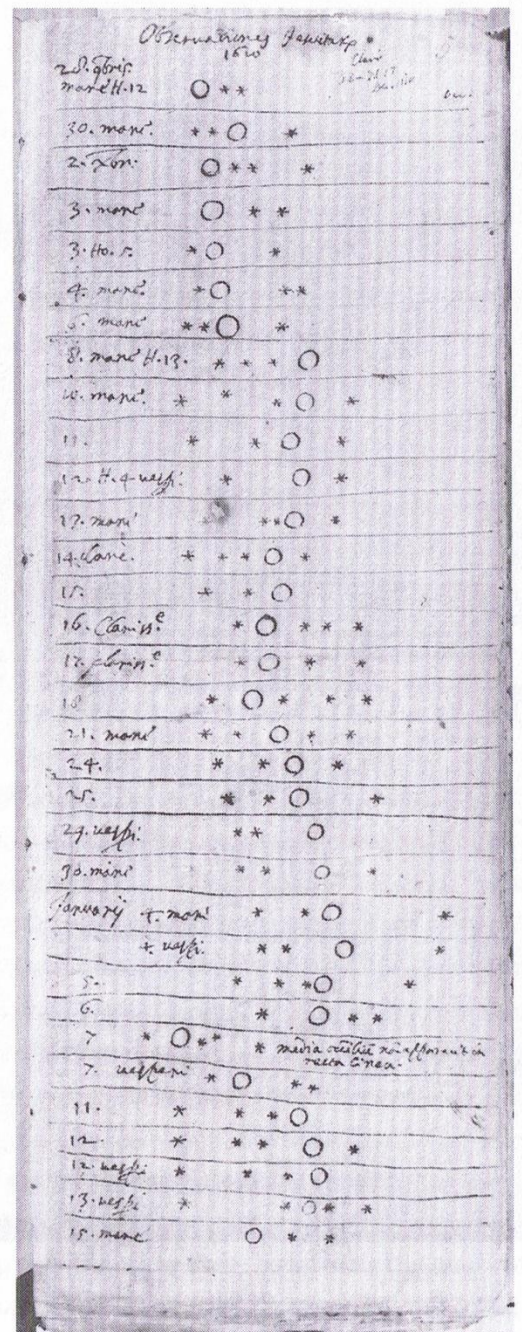 Observationes Jesuitarum
1610
28. 9bris.
mane H. 12 ○ * *
30. mane. * * ○ *
2. Xbr: ○ * * *
3. mane ○ * *
3. Ho. 5. * ○ *
4. mane. * ○ * *
6. mane * * ○ *
8. mane H. 13. * * * ○
10. mane. * * * ○ *
11. * * ○ *
12. H. 4 vesp: * ○ *
13. mane * * ○ *
14. clare. * * * ○ *
15. * * ○
16. Clariss.e * ○ * * *
17. clariss.e * ○ * *
18 * ○ * * *
21. mane * * ○ * *
24. * * ○ *
25. * * ○ *
29. vesp: * * ○
30. mane * * ○ *
Januarij 4. mane * * ○ *
4. vesp: * * ○ *
5. * * * ○ *
6. * ○ * *
7 * ○ * * * media non in
recta linea.
7. vesperi * ○ * *
11. * * * ○
12. * * * ○ *
12. vesp: * * * ○
13. vesp: * * ○ * *
15. mane ○ * *